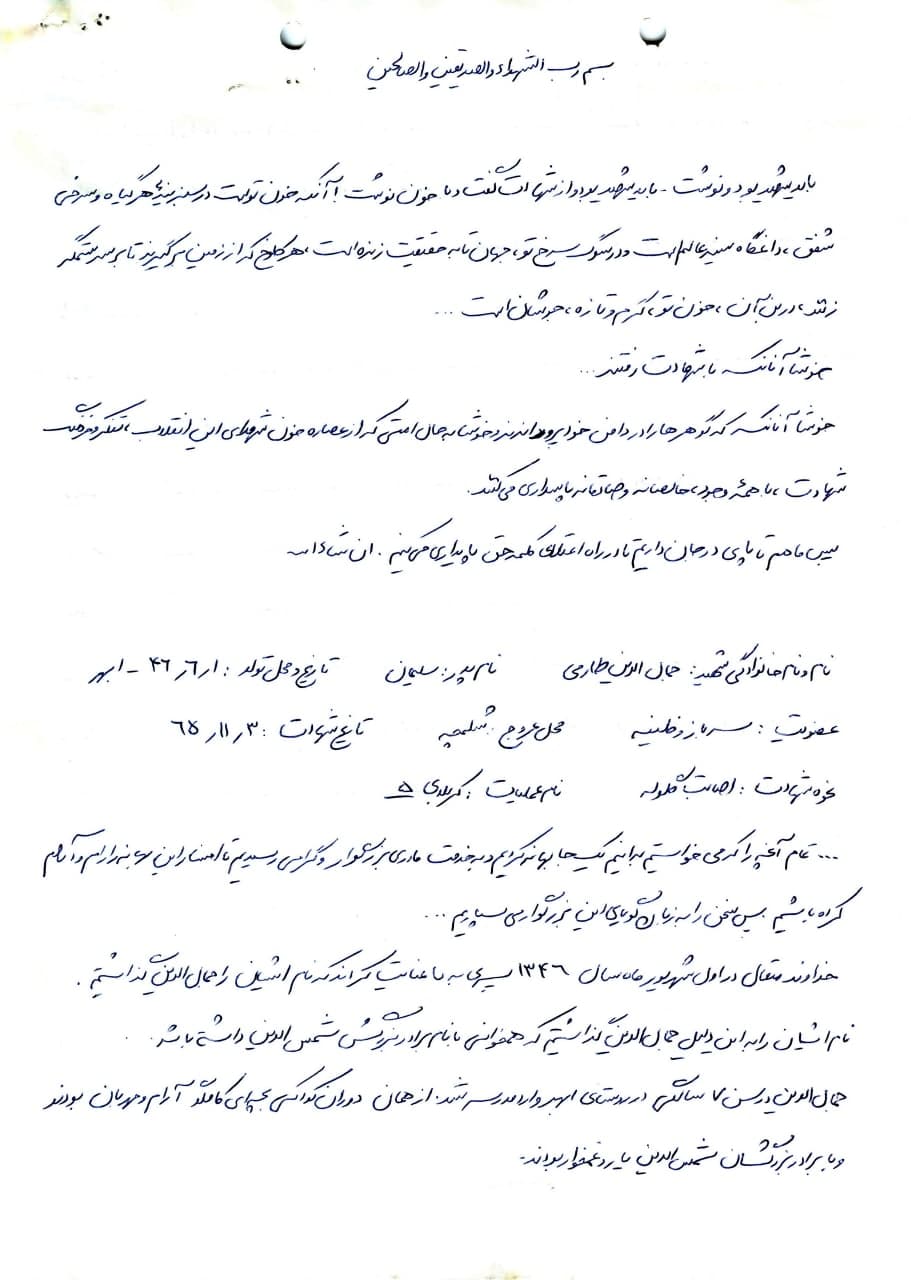 بسم رب الشهداء والصدیقین والصالحین
باید شهید بود و نوشت - باید شهید بود و از شهادت گفت و با خون نوشت! آنکه خون توست در سبزینهٔ هر گیاه و سرخی
شفق، داغگاه سینه عالم است و در سوگ سرخ تو، جهان تا به حقیقت زنده است، هر کلوخ که از زمین برگیرند تا بر سر ستمگر
زنند، در بن آن، خون تو، گرم و تازه، جوشان است ...
خوشا آنانکه با شهادت رفتند...
خوشا آنانکه که گوهرها را در دامن خود پروراندند و خوشا به حال امتی که از عصاره خون شهدای این انقلاب، تفکر و فرهنگ
شهادت، با همهٔ وجود، خالصانه و صادقانه پاسداری می‌کنند.
پس ما هم تا پای در جان داریم تا در راه اعتلای کلمه حق پایداری می‌کنیم. ان شاءالله
نام و نام خانوادگی شهید: جمال الدین طارمی نام پدر: سلیمان تاریخ و محل تولد: ۴۶،۶،۱ - ابهر
عضویت: سرباز وظیفه محل عروج: شلمچه تاریخ شهادت: ۶۵،۱۱،۳
نحوه شهادت: اصابت گلوله نام عملیات: کربلای ۵
... تمام آنچه را که می خواستیم بدانیم یکجا بهانه کردیم و به خدمت مادری بزرگوار و گرامی رسیدیم تا
گراه باشیم پس سخن را به زبان گویای این بزرگوار می سپاریم ...
خداوند متعال در اول شهریور ماه سال ۱۳۴۶ پسری به ما عنایت کراند که نام ایشان را جمال الدین گذاشتیم.
نام ایشان را به این دلیل جمال الدین گذاشتیم که همخوانی با نام برادر بزرگش شمس الدین داشته باشد.
جمال الدین در سن ۷ سالگی در روستای ابهر وارد مدرسه شد. از همان دوران کودکی بچه‌ای کاملاً آرام و مهربان بودند
و با برادر بزرگشان شمس الدین یار و غمخوار بودند.